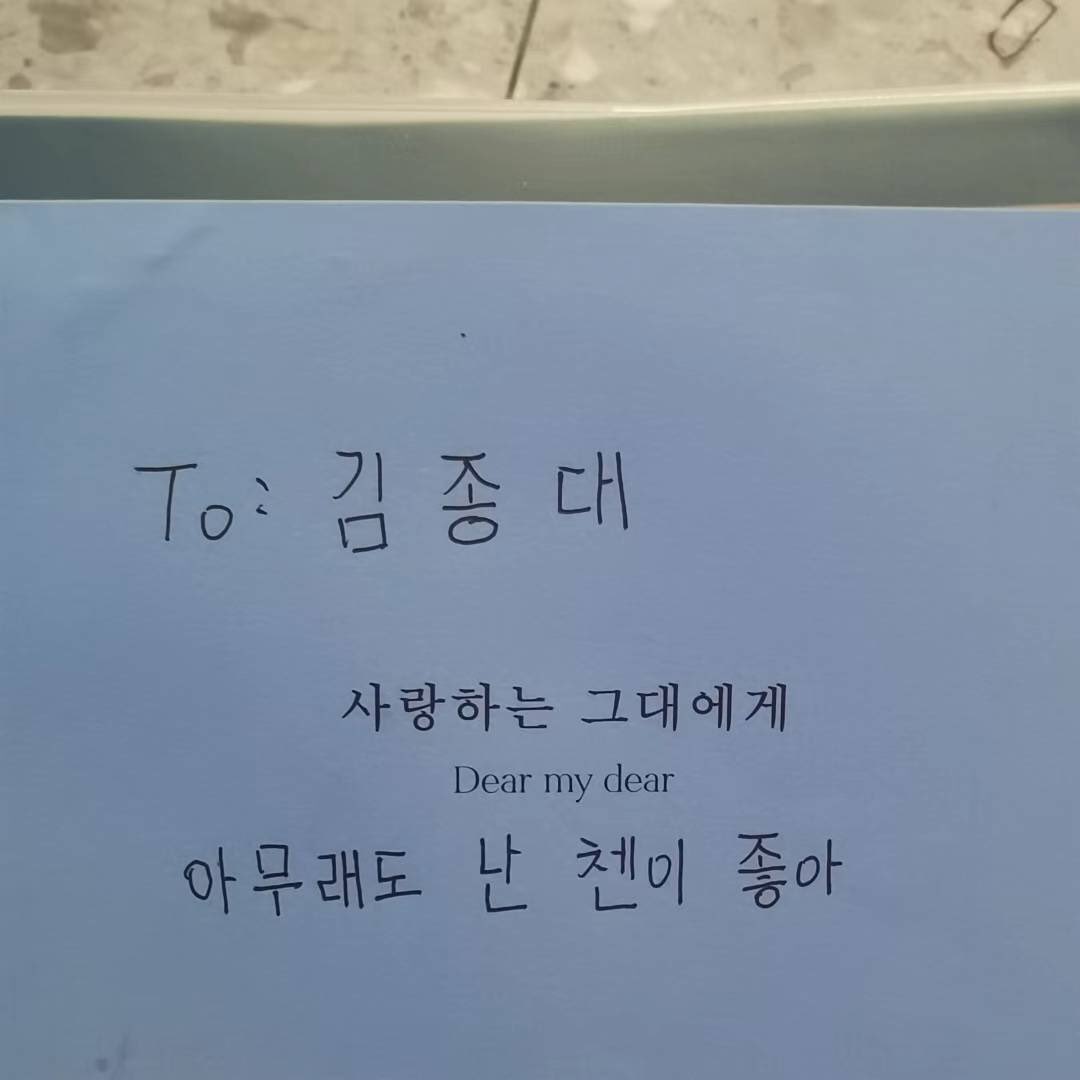 To: 김종대
사랑하는 그대에게
Dear my dear
아무래도 난 첸이 좋아